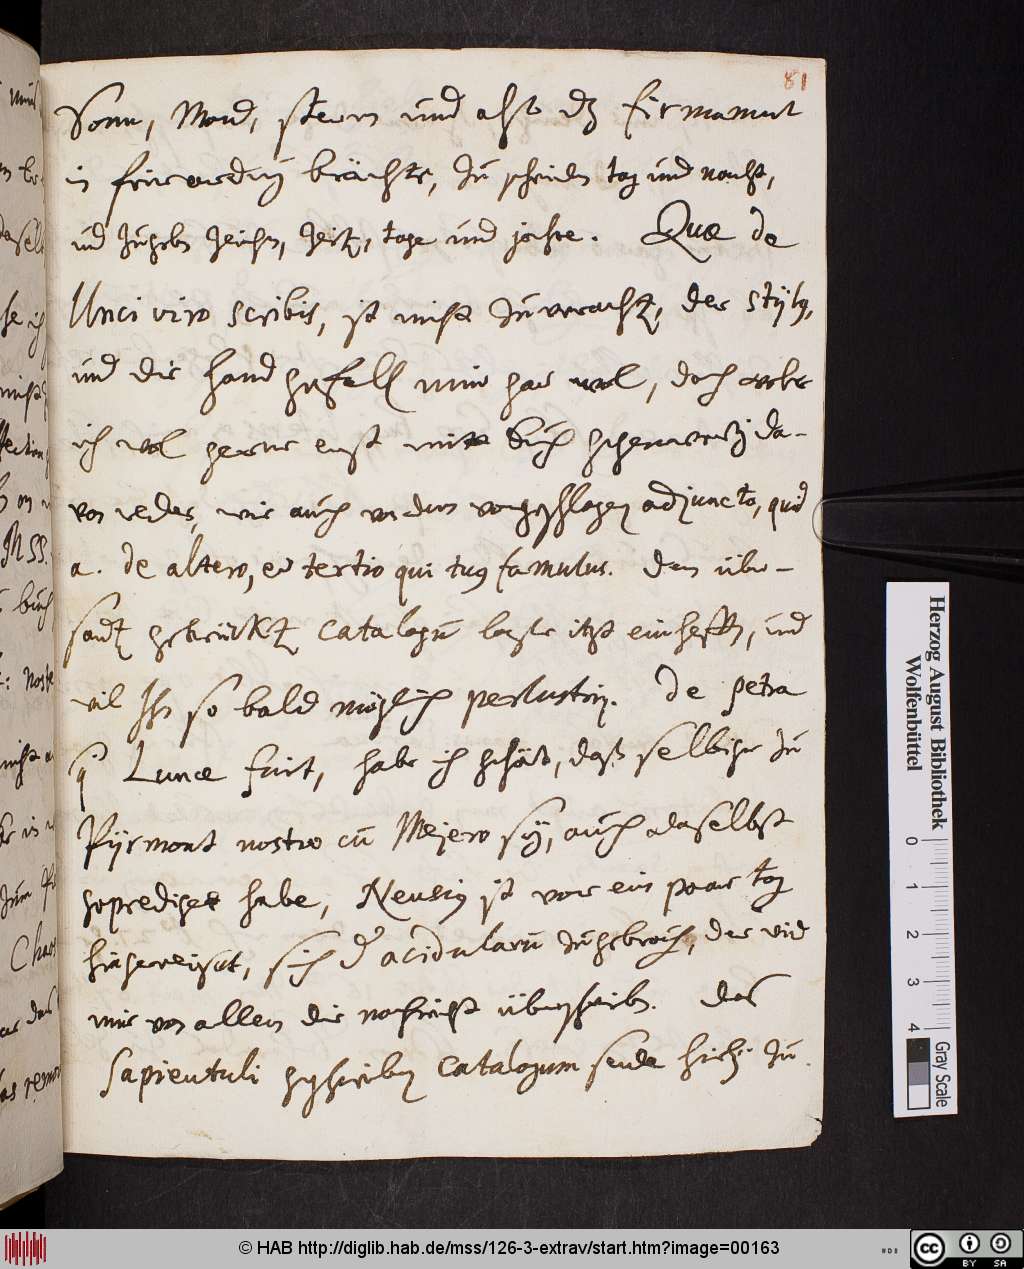 81
Sonn, Mond, stern und also dz firmament
in frierordnung brächte, zu scheiden tag und nacht,
und zugeben zeichen, zeiten, tage und jahre. Quæ de
Unci viro scribis, ist nicht zuverachten, der stylus,
und die hand gefellt mir gar wol, doch
ich wol gerne erst mitt Euch gegenwertig da-
von reden, wie auch von dem vorgeschlagen adjuncto, quid
a. de altero, et tertio qui tuus famulus. Den über-
sandten gedruckten catalogum lasse itzt einhefften, und
wil Ihn so bald möglich perlustriren. De petra
q Lunæ fuit, habe ich gehört, daß selbiger zu
Pyrmont nostro cum Mejero sey, auch adaselbst
geprediget habe, Neusius ist vor ein paar tag
hingereiset, sich der acidularum zugebrauchen, der wird
mir von allen die nachricht überschreiben. Das
Sapientuli geschrieben Catalogum sende hiebey zu
Herzog August Bibliothek
Wolfenbüttel
0 1 2 3 4
Gray Scale
© HAB http://diglib.hab.de/mss/126-3-extrav/start.htm?image=00163
cc BY SA